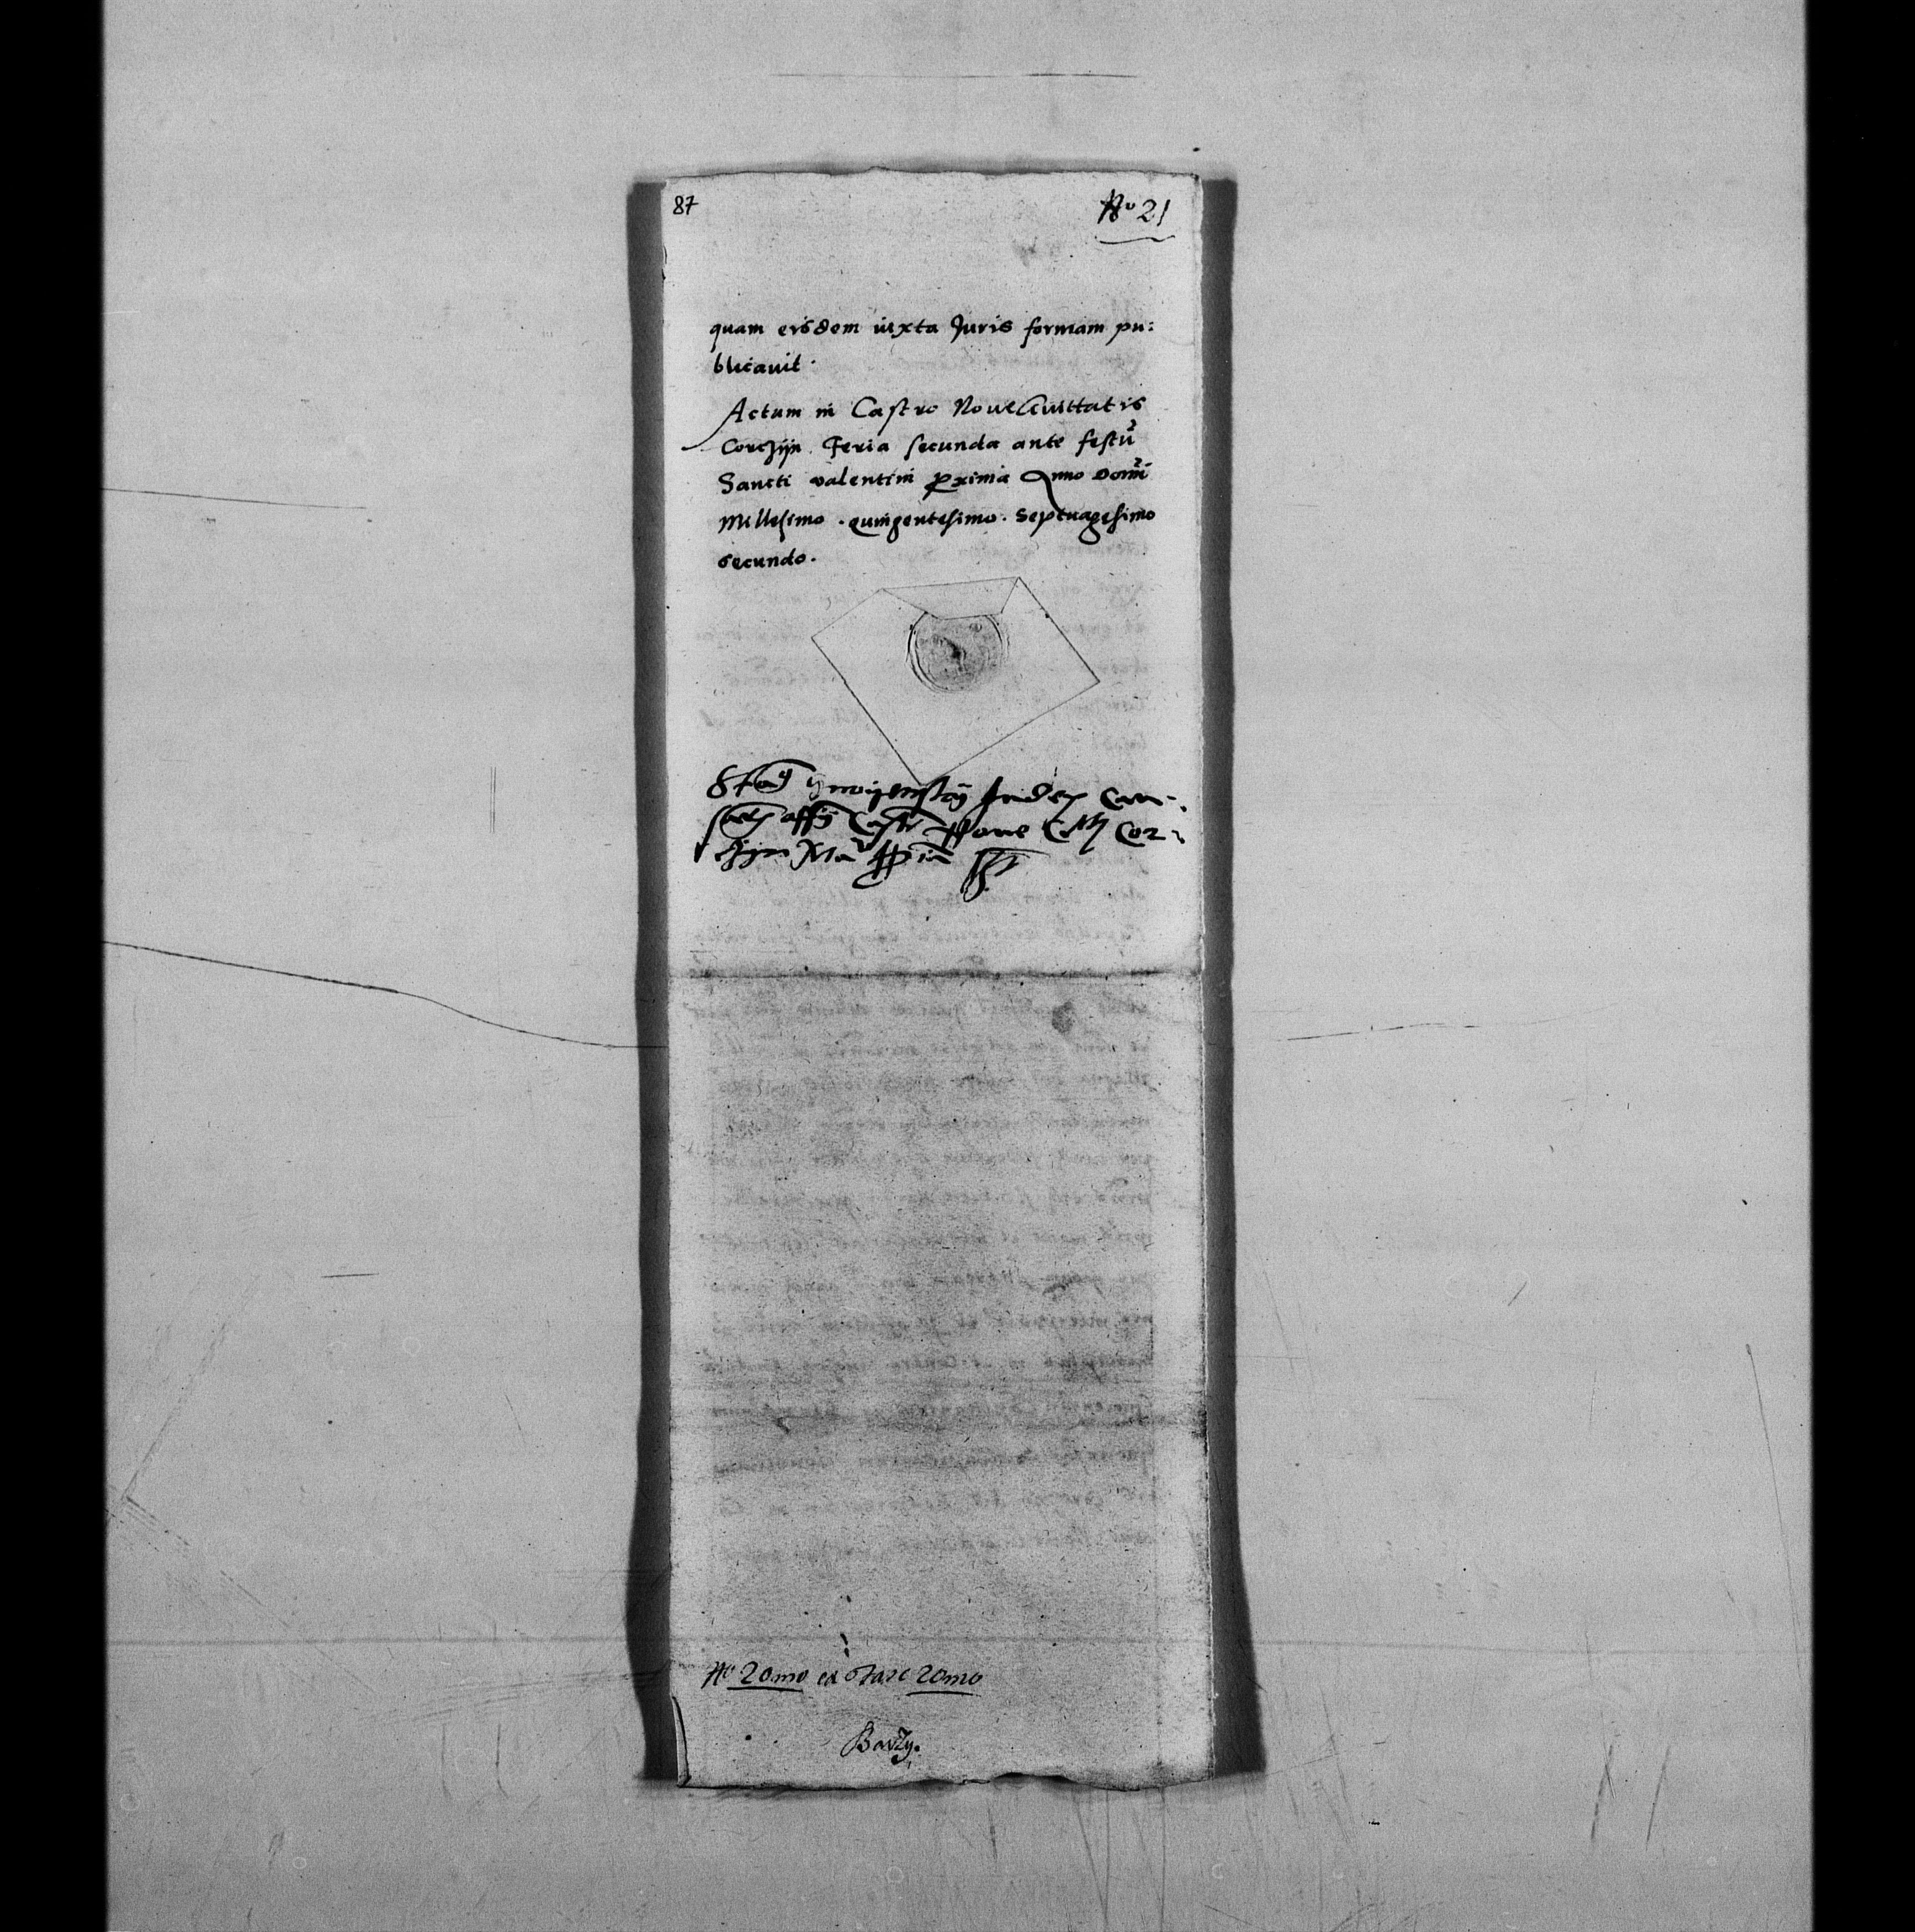 87
No 21
quam eisdem iuxta Juris formam pu:
blicauit.
Actum in Castro Noue Ciuittatis
Corczijn Feria secunda ante festū
Sancti valentini proxima Anno Domī
Millesimo . quingentesimo . Septuagesimo
secundo.
Judex
Castr Noue Cor:
czijn
No 20mo ex Fasc 20mo